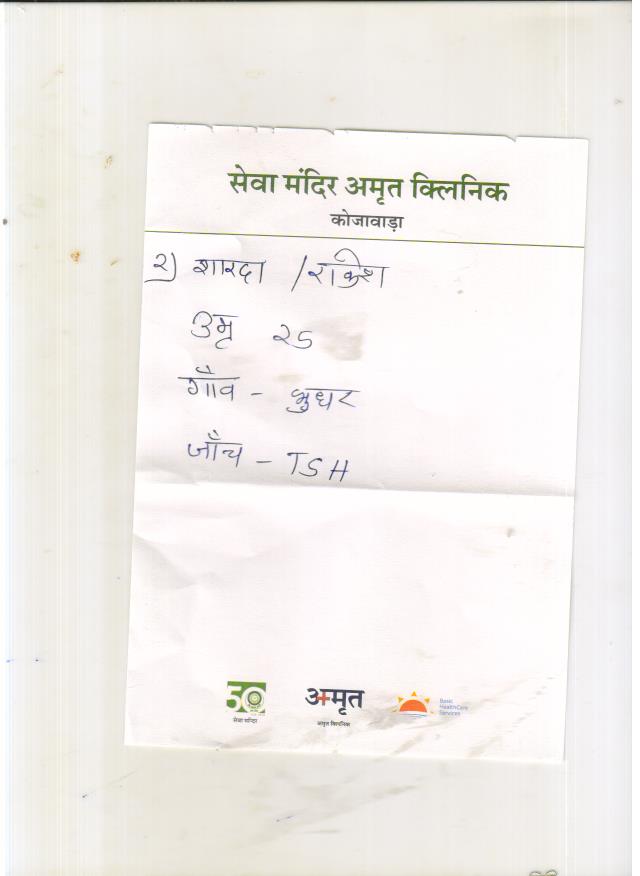 सेवा मंदिर अमृत क्लिनिक
कोजावाड़ा
२) शारदा /राकेश
उम्र २5
गाँव - भुधर
जाँच - TSH
50
सेवा मन्दिर
अमृत
अमृत क्लिनिक
Basic
HealthCare
Services